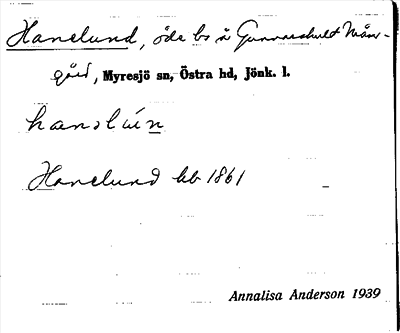 Hanelund, öde bs å Gunnarshult Mån-
gård, Myresjö sn, Östra hd, Jönk. l.
hanəlún
Hanelund hb 1861
Annalisa Anderson 1939